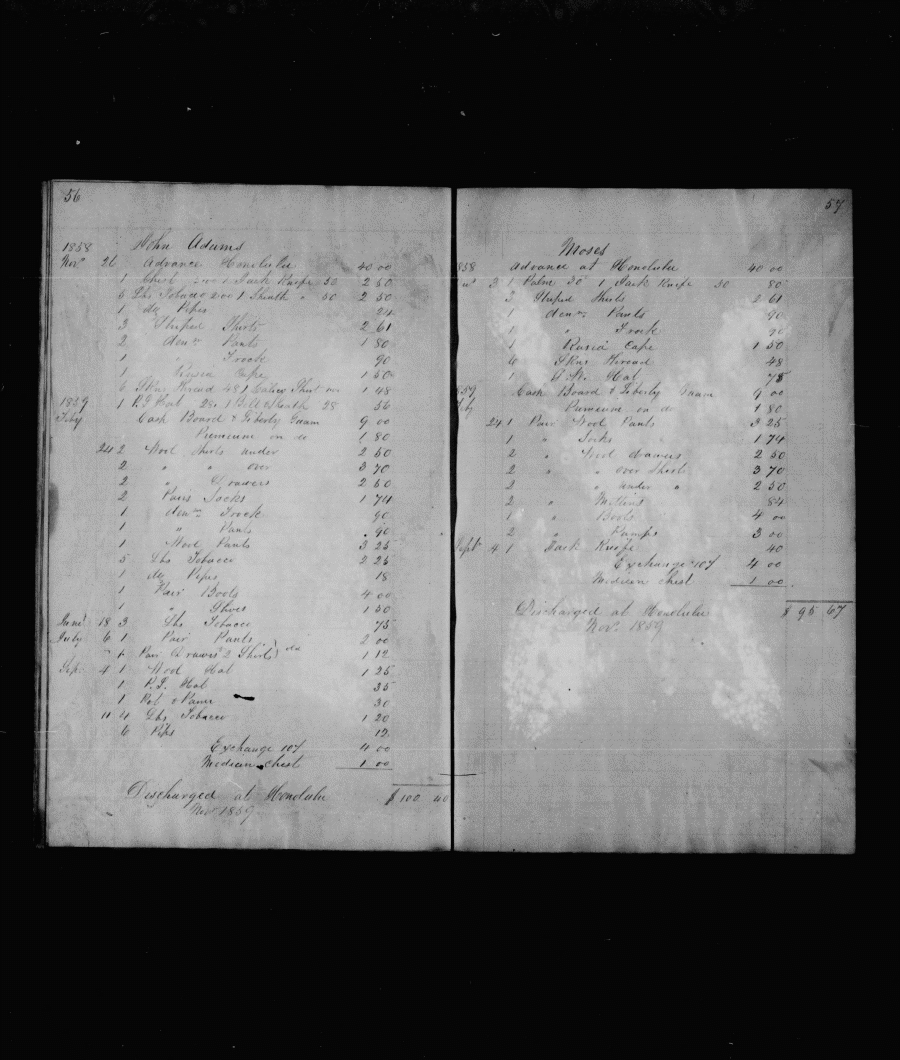 56
1858 John Adams
Novr 26 Advance Honolulu 40 00
1 Chest 200 1 Jack Knife 50 2 50
5 Lbs Tobacco 200 1 Sheath " 50 2 50
1 do Pipes 24
3 Striped Shirts 2 61
2 denm Pants 1 80
1 " Frock 90
1 Rusia Cape 1 50
6 Skns Thread 48 1 Shirt 1 48
1859 1 Hat 28 1 Belt & Sheath 28 56
Feby Cash Board & Liberty Guam 9 00
Premeum on do 1 80
24 2 Wool Shirts under 2 50
2 " " over 3 70
2 " Drawers 2 50
2 Pairs Socks 1 74
1 denm Frock 90
1 " Pants 90
1 Wool Pants 3 25
5 Lbs Tobacco 2 25
1 do Pipes 18
1 Pair Boots 4 00
1 " Shoes 1 50
June 18 3 Lbs Tobacco 75
July 6 1 Pair Pants 2 00
" 1 Pair Drawrs 2 Shirts old 1 12
Sep. 4 1 Wool Hat 1 25
1 Hat 35
1 Pot & Pann 30
11 4 Lbs Tobacco 1 20
6 Pips 12
Exchange 107 4 00
Medicun chest 1 00
Discharged at Honolulu $ 100 40
Novr 1859
57
Moses
1858 Advance at Honolulu 40 00
3 1 Palm 30 1 Jack Knife 50 80
3 Striped Shirts 2 61
1 denm Pants 90
1 " Frock 90
1 Rusia Cape 1 50
6 Skns Thread 48
1 Hat 75
1859 Cash Board & Liberty Guam 9 00
Feby Premeum on do 1 80
24 1 Pair Wool Pants 3 25
1 " Socks 1 74
2 " Wool drawers 2 50
2 " " over Shirts 3 70
2 " under " 2 50
2 " Mittins 84
1 " Boots 4 00
2 " Pumps 3 00
Sept 4 1 Jack Knife 40
Exchange 107 4 00
Medicun chest 1 00
Discharged at Honolulu $ 95 67
Nov. 1859